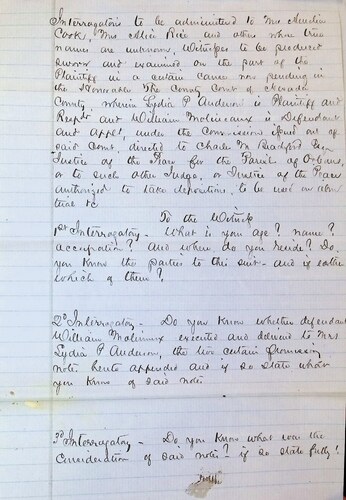 Interrogatories to be administered to Mrs Aurelia
Cook, Mrs Alice Rice and others whose true
names are unknown, Witnesses to be produced
sworn and examined on the part of the
Plaintiff in a certain cause now pending in
the Honorable The County Court of Nevada
County, wherein Lydia P Anderson is Plaintiff and
Respt and William Molineaux is Defendant
and Applt, under the Commission issued out of
said Court, directed to Charles M Bradford Esqr
Justice of the Peace for the Parish of Orleans,
or to such other Judge, or Justice of the Peace
authorized to take depositions, to be used on
trial &c
To the Witness
1st Interrogatory - What is your age? name?
occupation? And where do you reside? Do
you know the parties to this suit - and if either
which of them?
2d Interrogatory - Do you know whether defendant
William Molineaux executed and delivered to Mrs
Lydia P Anderson, the two certain promissory
notes hereto appended and if so state what
you know of said notes
3d Interrogatory - Do you know what was the
consideration of said notes? if so state fully!